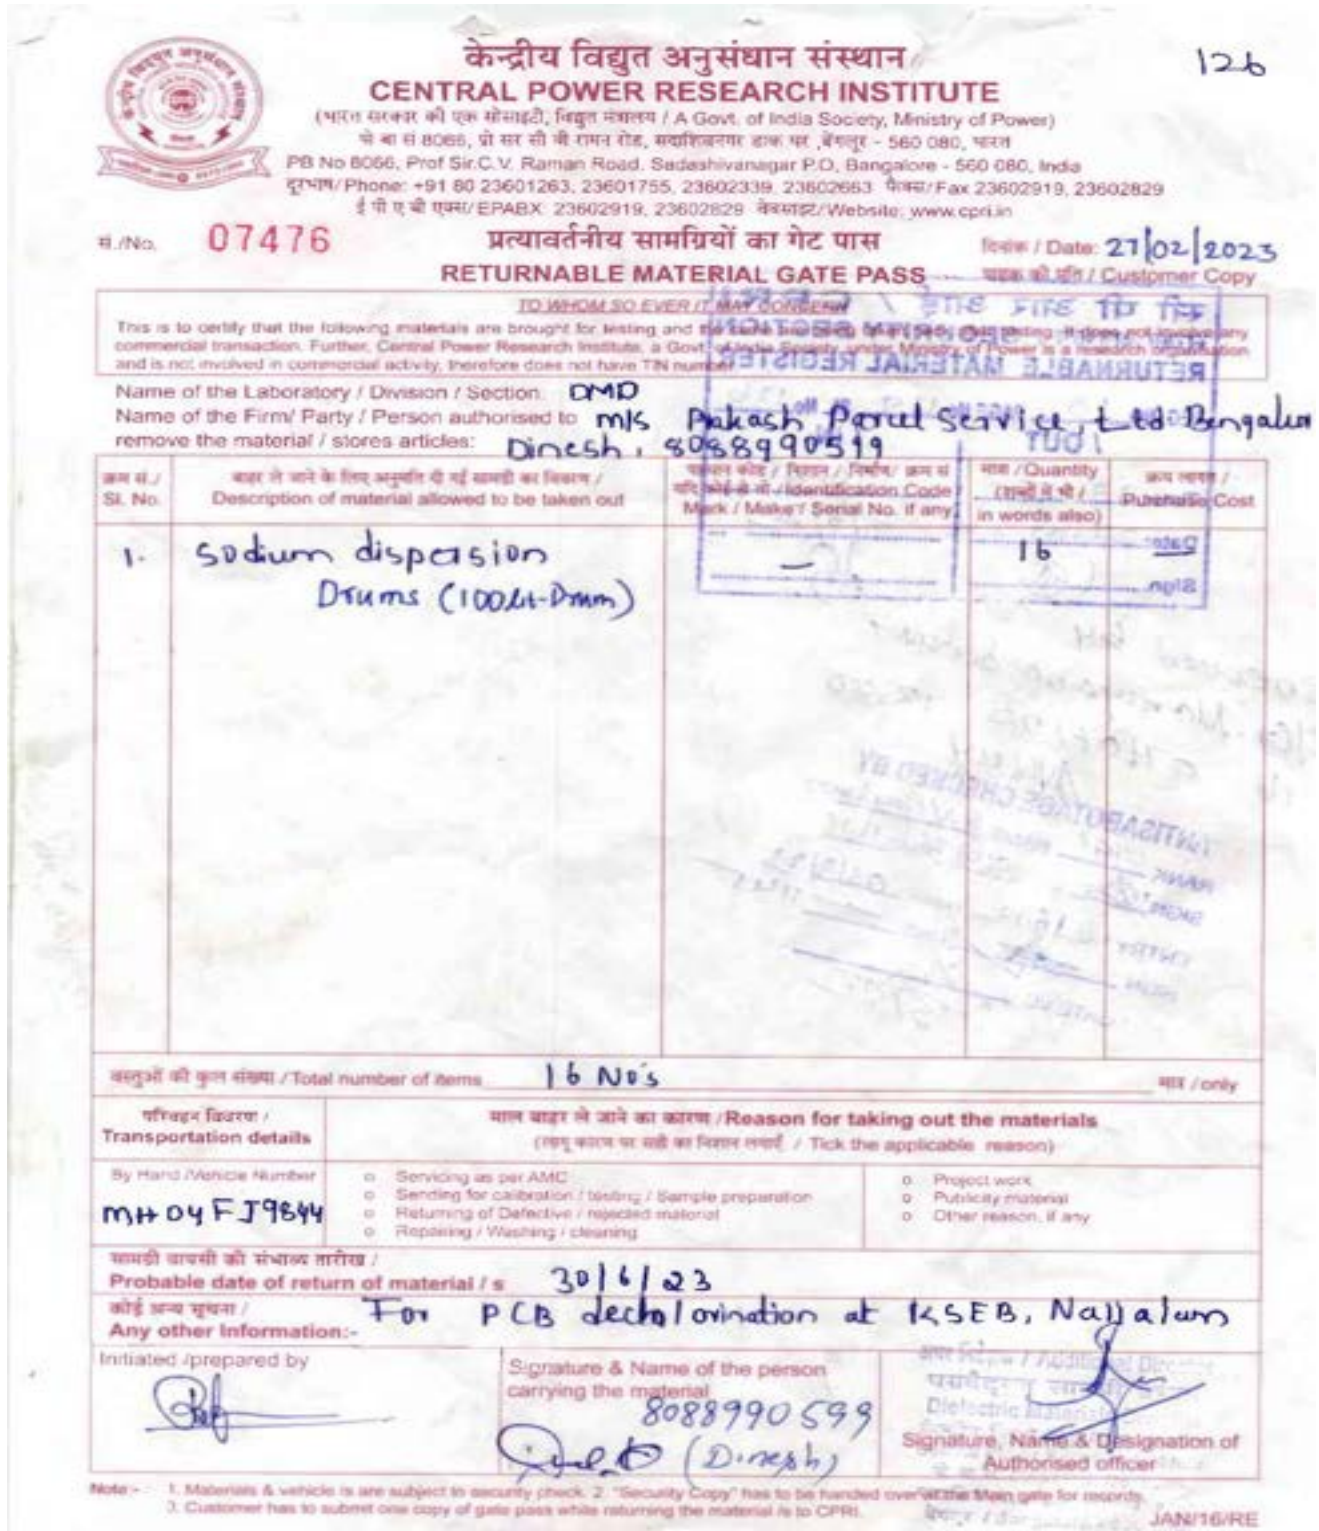 केन्द्रीय विद्युत अनुसंधान संस्थान
126
CENTRAL POWER RESEARCH INSTITUTE
(भारत सरकार की एक सोसाइटी, विद्युत मंत्रालय / A Govt. of India Society, Ministry of Power)
पो बा सं 8066, प्रो सर सी वी रामन रोड, सदाशिवनगर डाक घर ,बेंगलूर - 560 080, भारत
PB No 8066, Prof Sir.C.V. Raman Road, Sadashivanagar P.O, Bangalore - 560 080, India
दूरभाष/Phone: +91 80 23601263, 23601755, 23602339, 23602663 फैक्स/Fax 23602919, 23602829
ई पी ए बी एक्स/EPABX: 23602919, 23602829 वेबसाइट/Website: www.cpri.in
सं./No. 07476
प्रत्यावर्तनीय सामग्रियों का गेट पास
दिनांक / Date: 27/02/2023
RETURNABLE MATERIAL GATE PASS
ग्राहक की प्रति / Customer Copy
TO WHOM SO EVER IT MAY CONCERN
This is to certify that the following materials are brought for testing and the same testing. It does not involve any
commercial transaction. Further, Central Power Research Institute, a Govt. of India Society, under Ministry of Power is a research organisation
and is not involved in commercial activity, therefore does not have TIN number
RETURNABLE MATERIAL REGISTER
Name of the Laboratory / Division / Section: DMD
Name of the Firm/ Party / Person authorised to M/s Prakash Parcel Service, Ltd Bengalur
remove the material / stores articles: Dinesh, 8088990599
OUT
क्रम सं./ Sl. No.
बाहर ले जाने के लिए अनुमति दी गई सामग्री का विवरण / Description of material allowed to be taken out
पहचान कोड / निशान / निर्माण/ क्रम सं यदि कोई हो तो / Identification Code / Mark / Make / Serial No. if any
मात्रा /Quantity (शब्दों में भी / in words also)
क्रय लागत / Purchase Cost
1. Sodium dispersion - 16
Drums (100Lt-Drum)
Date:
Sign.
ANTISABOTAGE CHECKED BY
RANK
SIGN
ENTRY
वस्तुओं की कुल संख्या /Total number of items 16 No's मात्र /only
परिवहन विवरण / Transportation details
माल बाहर ले जाने का कारण /Reason for taking out the materials
(लागू कारण पर सही का निशान लगाएँ / Tick the applicable reason)
By Hand /Vehicle Number
MH04FJ9844
o Servicing as per AMC
o Sending for calibration / testing / Sample preparation
o Returning of Defective / rejected material
o Repairing / Washing / cleaning
o Project work
o Publicity material
o Other reason, if any
सामग्री वापसी की संभाव्य तारीख /
Probable date of return of material / s 30/6/23
कोई अन्य सूचना /
Any other Information:- For PCB dechalorination at KSEB, Nallalam
Initiated /prepared by
Signature & Name of the person
carrying the material
8088990599
(Dinesh)
Signature, Name & Designation of
Authorised officer
Note :- 1. Materials & vehicle is are subject to security check. 2. "Security Copy" has to be handed over at the Main gate for records.
3. Customer has to submit one copy of gate pass while returning the material is to CPRI.
JAN/16/RE